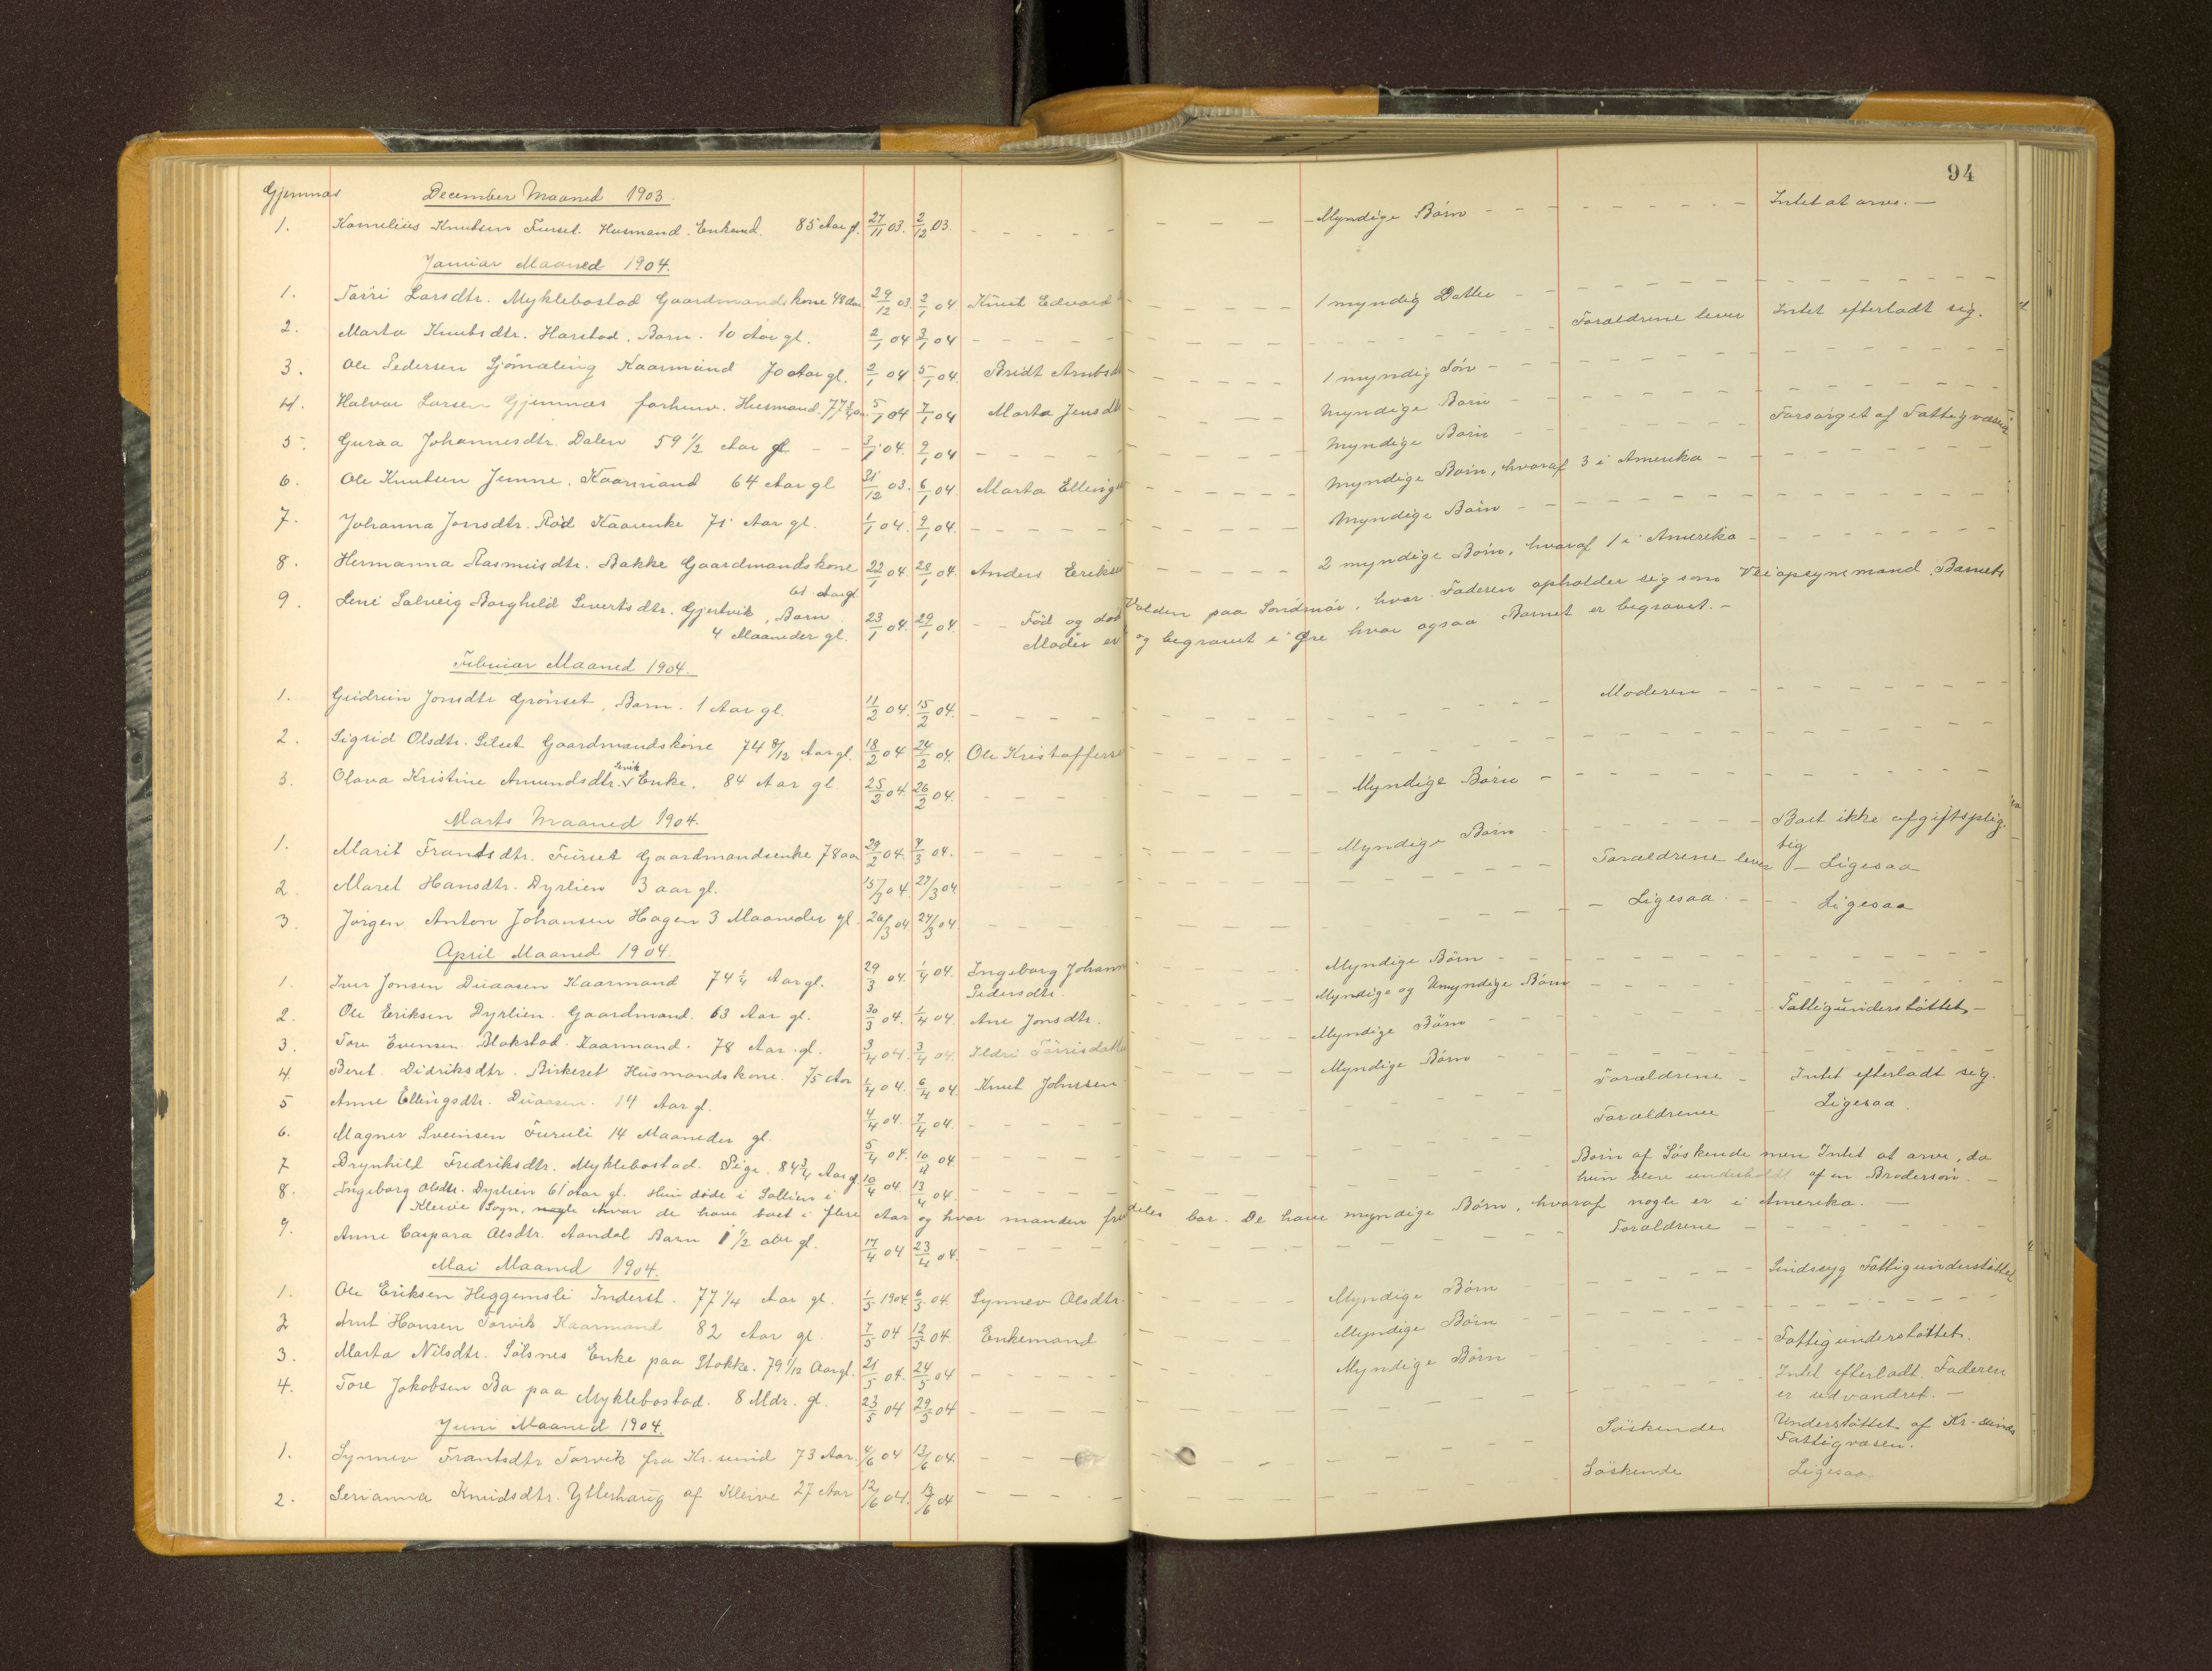 94
Gjemnæs December Maaned 1903.
1. Kornelius Knutsen Furset. Husmand. Enkemd. 85 Aar gl. 27/11 03. 2/12 03. - - - - - Myndige Börn - - - - - Intet at arve. -
Januar Maaned 1904.
1. Larsdtr. Myklebostad Gaardmandskone 48 Aar 29/12 03. 2/1 04 Knut Edvard - - - 1 myndig Datter - - - - -
2. Marta Knutsdtr. Harstad. Barn. 10 Aar gl. 2/1 04 3/1 04 - - - - - Forældrene lever Intet efterladt sig.
3. Ole Pedersen Gjömaling Kaarmand 70 Aar gl. 2/1 04 5/1 04. Bridt Arntsd - - - 1 myndig Sön - - - - -
4. Halvor Larsen Gjemnæs forhenv. Husmand. 77 3/4 Aar 5/1 04 7/1 04 Marta Jensdt - - - Myndige Börn - - - - -
5. Guraa Johannesdtr. Dalen 59 1/2 Aar gl. - - 3/1 04. 9/1 04 - - - - - Myndige Börn - - - Forsörget af Fattigvæsen
6. Ole Knutsen Jemne. Kaarmand 64 Aar gl 31/12 03. 6/1 04. Marta Elling - - - Myndige Börn, hvoraf 3 i Amerika - - - - -
7. Johanna Jonsdtr. Röd Kaarenke 71 Aar gl. 1/1 04. 9/1 04. - - - - - Myndige Börn - - - - -
8. Hermanna Rasmusdtr. Bakke Gaardmandskone 22/1 04. 28/1 04. Anders Eriksen - - - 2 myndige Börn, hvoraf 1 i Amerika - - - - -
61 Aar gl
9. Leni Solveig Borghild Sivertsdtr. Gjerlvik, Barn 23/1 04. 29/1 04. - - Föd og död Volden paa Söndmör, hvor Faderen opholder sig som Veiopsynsmand. Barnets
4 Maaneder gl. Moder er og begravet i Öre hvor ogsaa Barnet er begravet. -
Februar Maaned 1904.
1. Gudrun Jonsdtr Grönset, Barn. 1 Aar gl. 11/2 04. 15/2 04. - - - - - Moderen - - - - -
2. Sigrid Olsdtr. Silset Gaardmandskone 74 8/12 Aar gl. 18/2 04 24/2 04. Ole Kristoffersen - - - - -
3. Olava Kristine Amundsdtr. Enke. 84 Aar gl 25/2 04. 26/2 04. - - - - - Myndige Börn - - - - -
Marts Maaned 1904.
1. Marit Frantsdtr. Furset Gaardmandsenke 78 aar 29/2 04. 7/3 04. - - - - - Myndige Börn - - - Boet ikke afgiftsplig-
tig
2. Maret Hansdtr. Dyrlien 3 aar gl. 15/3 04. 27/3 04 - - - - - Forældrene lever - Ligesaa
3. Jörgen Anton Johansen Hagen 3 Maaneder gl. 26/3 04. 27/3 04. - - - - - Ligesaa. - - Ligesaa
April Maaned 1904.
1. Iver Jonsen Duaasen Kaarmand 74 1/4 Aar gl. 29/3 04. 1/4 04. Ingeborg Johann - - - Myndige Börn - - - - -
Pedersdtr.
2. Ole Eriksen Dyrlien. Gaardmand. 63 Aar gl. 30/3 04. 1/4 04. Ane Jonsdtr. - - - Myndige og Umyndige Börn - - - - -
3. Tore Evensen Blakstad. Kaarmand. 78 Aar gl. 3/4 04. 3/4 04. Ildri Törrisdatter - - - Myndige Börn - - - Fattigunderstöttet -
4. Beret Didriksdtr. Birkeset Husmandskone. 75 Aar 1/4 04. 6/4 04. Knut Johnsen - - - Myndige Börn - - - - -
5 Anne Ellingsdtr. Duaasen. 14 Aar gl. 4/4 04. 7/4 04. - - - - - Forældrene - Intet efterladt sig.
6. Magner Sveinsen Furuli 14 Maaneder gl. 5/4 04. 10/4 04. - - - - - Forældrene - Ligesaa.
7 Brynhild Fredriksdtr. Myklebostad. Pige. 84 3/4 Aar gl 10/4 04. 13/4 04. - - - - - Börn af Söskende men Intet at arve, da
hun blev underholdt af en Brodersön. -
8. Ingeborg Olsdtr. Dyrlien 61 Aar gl. Hun döde i Sollien i
Kleive Sogn, hvor de have boet i flere Aar og hvor manden fremdeles bor. De have myndige Börn, hvoraf nogle er i Amerika. -
9. Anne Caspara Olsdtr. Aandal Barn 1 1/2 aar gl. 17/4 04 23/4 04. - - - - - Forældrene - - - - -
Mai Maaned 1904.
1. Ole Eriksen Heggemsli Inderst. 77 1/4 Aar gl. 1/5 1904. 6/5 04. Synnev Olsdtr. - - - Myndige Börn - - - Sindssyg Fattigunderstöttet
2 Arnt Hansen Torvik Kaarmand 82 Aar gl 7/5 04 12/5 04. Enkemand - - - Myndige Börn - - - - -
3. Marta Nilsdtr. Sölsnes Enke paa Stokke. 79 1/12 Aar gl. 21/5 04. 24/5 04 - - - - - Myndige Börn - - - Fattigunderstöttet.
4. Tore Jakobsen Bø paa Myklebostad. 8 Mdr. gl. 23/5 04 29/5 04 - - - - - Intet efterladt. Faderen
er udvandret. -
Juni Maaned 1904.
1. Synnev Frantsdtr Torvik fra Kr.sund 73 Aar. 4/6 04 13/6 04. - - - - - Söskende Understöttet af Kr-sunds
Fattigvæsen.
2. Serianna Knudsdtr. Ytterhaug af Kleive 27 Aar 12/6 04. 13/6 04 - - - - - Söskende Ligesaa.